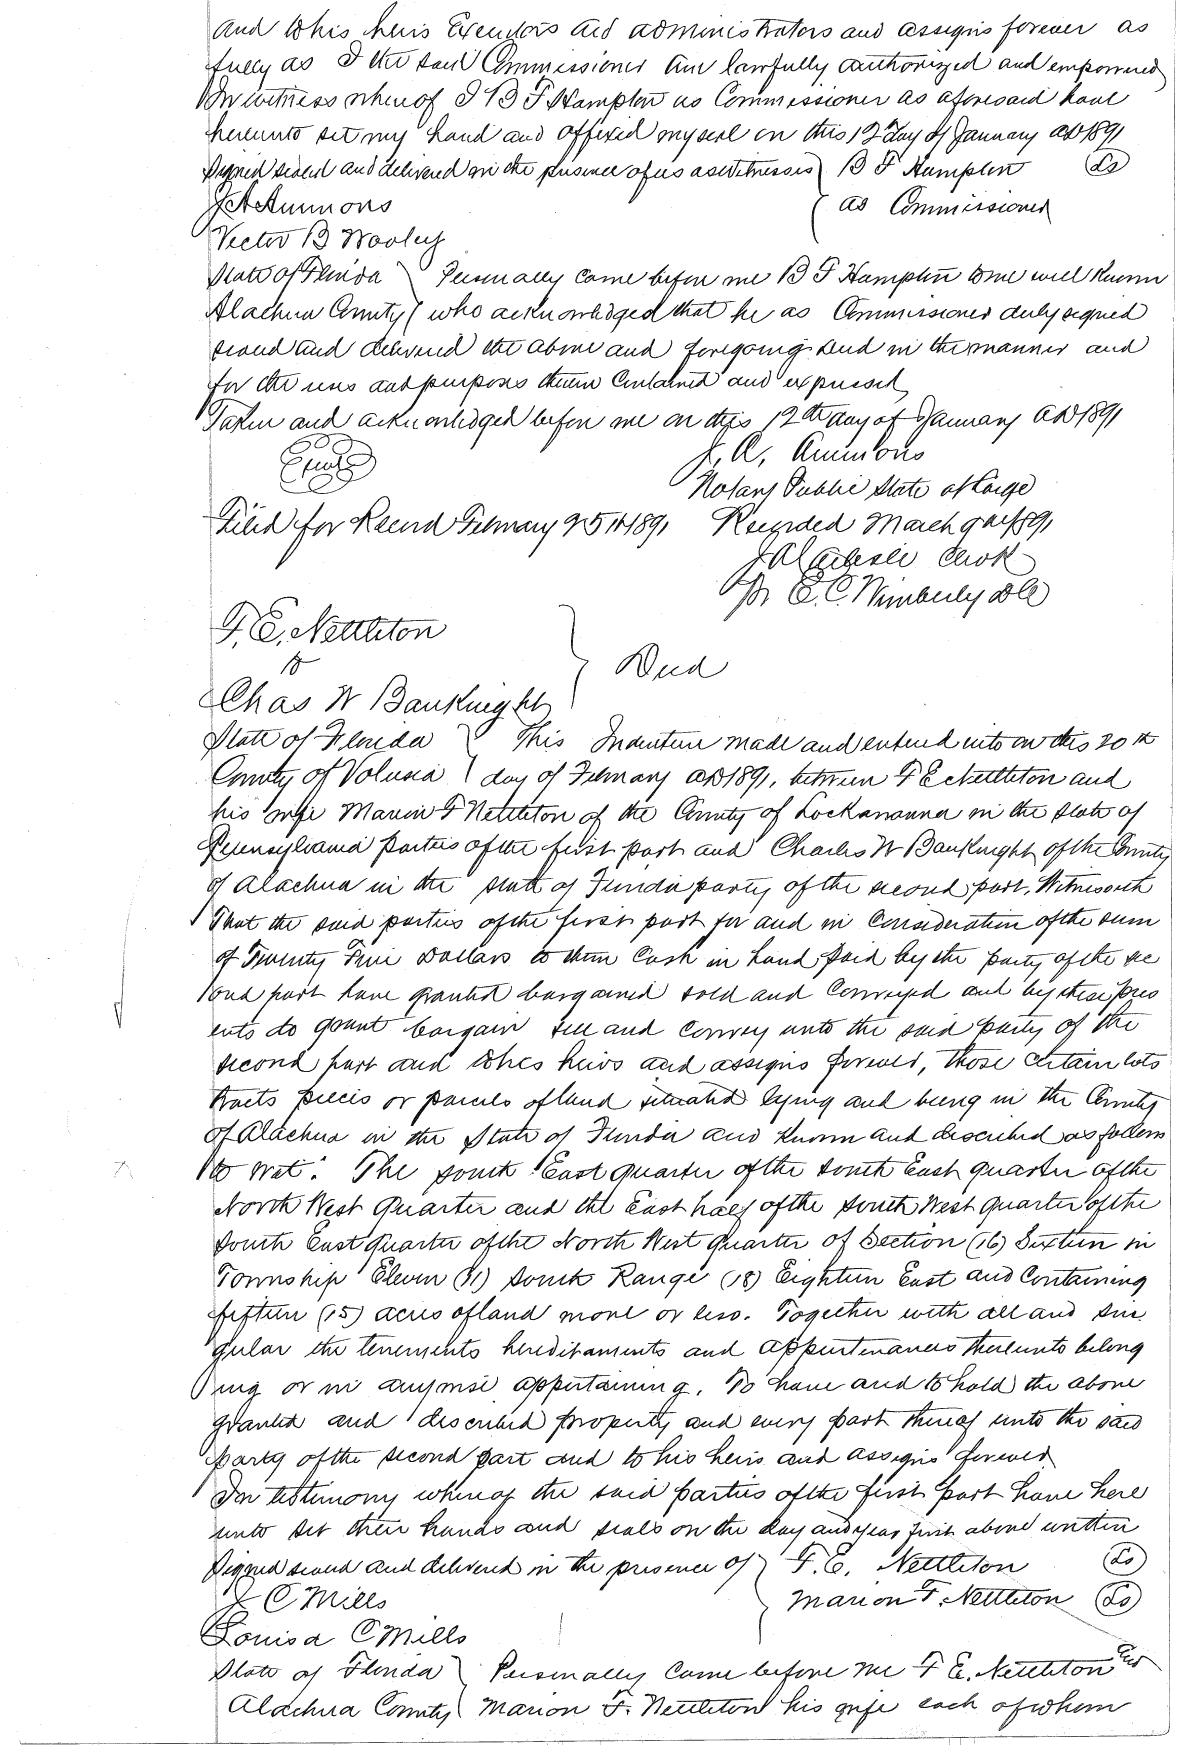 and to his heirs Executors and administrators and assigns forever as
fully as I the said Commissioner am lawfully authorized and empowered
In witness whereof I B F Hampton as Commissioner as aforesaid have
hereunto set my hand and affixed my seal on this 12 day of January AD 1891
Signed sealed and delivered in the presence of us as witnesses B F Hampton Ls
J A Ammons as Commissioner
Victor B Wooley
State of Florida Personally came before me B F Hampton to me well known
Alachua County who acknowledged that he as Commissioner duly signed
sealed and delivered the above and foregoing deed in the manner and
for the uses and purposes therein Contained and expressed
Taken and acknowledged before me on this 12th day of January AD 1891
J. A. Ammons
Notary Public State at Large
Filed for Record February 25th 1891 Recorded March 9th 1891
Clerk
Pr E. C. Wimberly DC
F. E. Nettleton
to
Deed
Chas W Bauknight
State of Florida This Indenture made and entered into on this 20th
County of Volusia day of February AD 1891, between F E Nettleton and
his wife Marion F Nettleton of the County of Lockawanna in the State of
Pennsylvania parties of the first part and Charles W Bauknight of the County
of Alachua in the state of Florida party of the second part, Witnesseth
That the said parties of the first part for and in Consideration of the sum
of Twenty Five Dollars to them Cash in hand paid by the party of the sec
ond part have granted bargained sold and Conveyed and by these pres
ents do grant bargain sell and convey unto the said party of the
second part and to his heirs and assigns forever, those certain lots
tracts pieces or parcels of land situated lying and being in the County
of Alachua in the State of Florida and known and described as follows
to wit: The South East quarter of the South East quarter of the
North West Quarter and the East half of the South West quarter of the
South East quarter of the North West quarter of Section (16) Sixteen in
Township Eleven (11) South Range (18) Eighteen East and Containing
fifteen (15) acres of land more or less. Together with all and sin
gular the tenements hereditaments and appurtenances thereunto belong
ing or in anywise appertaining. To have and to hold the above
granted and described property and every part thereof unto the said
party of the second part and to his heirs and assigns forever
In testimony whereof the said parties of the first part have here
unto set their hands and seals on the day and year first above written
Signed sealed and delivered in the presence of F. E. Nettleton Ls
J C Mills Marion F. Nettleton Ls
Louisa C Mills
State of Florida Personally came before me F E. Nettleton and
Alachua County Marion F. Nettleton his wife each of whom